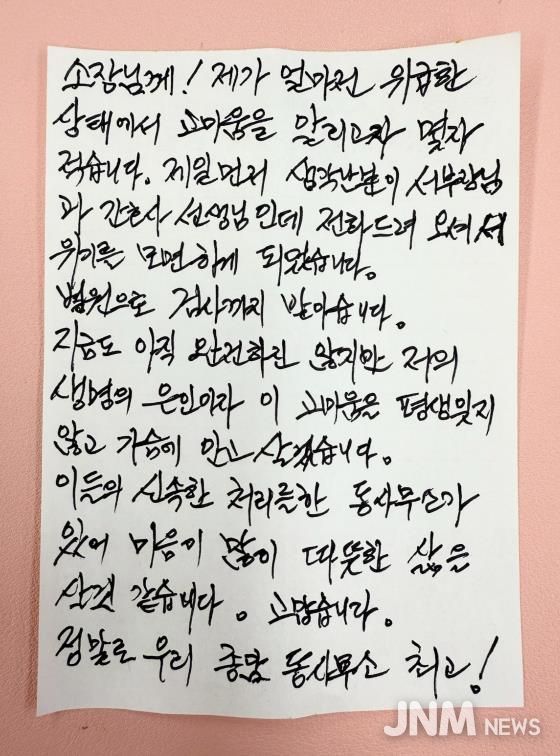 소장님께! 제가 얼마전 위급한
상태에서 고마움을 알리고자 몇자
적습니다. 제일먼저 생각난분이 서부장님
과 간호사 선생님인데 전화드려 오셔서
위기를 모면하게 되었습니다.
병원으로 검사까지 받아습니다.
지금도 아직 완전하진 않지만 저의
생명의 은인이라 이 고마움을 평생잊지
않고 가슴에 안고 살겠습니다.
이들의 신속한 처리를한 동사무소가
있어 마음이 많이 따뜻한 삶을
산것 같습니다. 고맙습니다.
정말로 우리 종암 동사무소 최고!
JNM NEWS